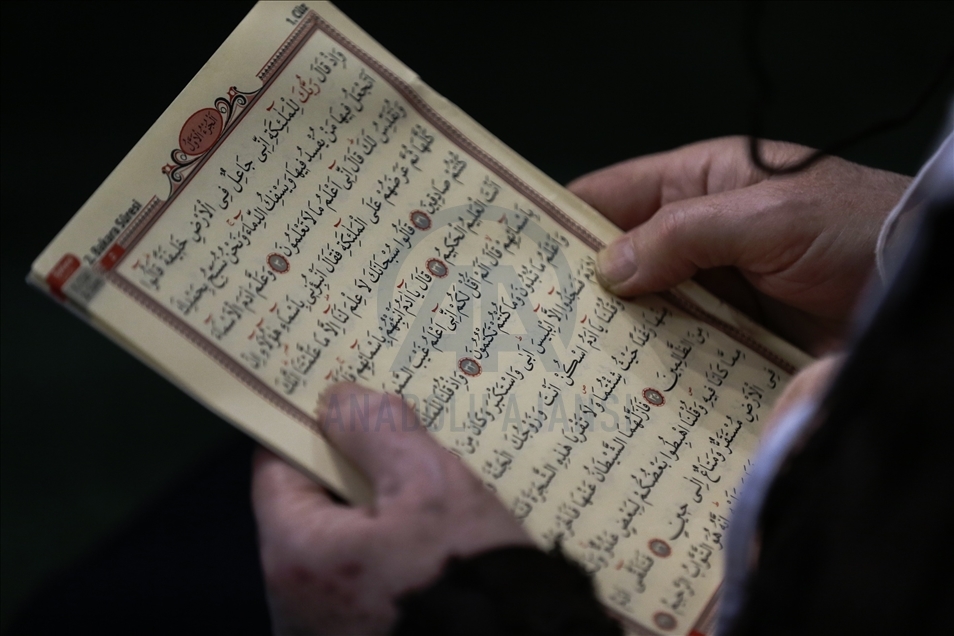 1. Cüz
اَلْجُزْءُ الْاَوَّلُ
2. Bakara Sûresi
وَاِذْ قَالَ رَبُّكَ لِلْمَلٰٓئِكَةِ اِنّ۪ي جَاعِلٌ فِي الْاَرْضِ خَل۪يفَةًۜ قَالُٓوا
اَتَجْعَلُ ف۪يهَا مَنْ يُفْسِدُ ف۪يهَا وَيَسْفِكُ الدِّمَٓاءَۚ وَنَحْنُ نُسَبِّحُ بِحَمْدِكَ
وَنُقَدِّسُ لَكَۜ قَالَ اِنّ۪ٓي اَعْلَمُ مَا لَا تَعْلَمُونَ ﴿٣٠﴾ وَعَلَّمَ اٰدَمَ الْاَسْمَٓاءَ
كُلَّهَا ثُمَّ عَرَضَهُمْ عَلَى الْمَلٰٓئِكَةِ فَقَالَ اَنْبِؤُ۫ن۪ي بِاَسْمَٓاءِ هٰٓؤُ۬لَٓاءِ اِنْ
كُنْتُمْ صَادِق۪ينَ ﴿٣١﴾ قَالُوا سُبْحَانَكَ لَا عِلْمَ لَنَٓا اِلَّا مَا عَلَّمْتَنَاۜ اِنَّكَ
اَنْتَ الْعَل۪يمُ الْحَك۪يمُ ﴿٣٢﴾ قَالَ يَٓا اٰدَمُ اَنْبِئْهُمْ بِاَسْمَٓائِهِمْۚ
بِاَسْمَٓائِهِمْۙ قَالَ اَلَمْ اَقُلْ لَكُمْ اِنّ۪ٓي اَعْلَمُ غَيْبَ
وَاَعْلَمُ مَا تُبْدُونَ وَمَا كُنْتُمْ تَكْتُمُونَ ﴿٣٣﴾ وَاِذْ قُلْنَا
اِلَّٓا اِبْل۪يسَۜ اَبٰى وَاسْتَكْبَرَ وَكَانَ مِنَ
وَقُلْنَا يَٓا اٰدَمُ اسْكُنْ اَنْتَ وَزَوْجُكَ الْجَنَّةَ
مِنْهَا حَيْثُ شِئْتُمَا وَلَا تَقْرَبَا هٰذِهِ الشَّجَرَةَ
مِنَ الظَّالِم۪ينَ ﴿٣٥﴾ فَاَزَلَّهُمَا الشَّيْطَانُ عَنْهَا
مِمَّا كَانَا ف۪يهِ وَقُلْنَا اهْبِطُوا بَعْضُكُمْ لِبَعْضٍ عَدُوٌّ
فِي الْاَرْضِ مُسْتَقَرٌّ وَمَتَاعٌ اِلٰى ح۪ينٍ ﴿٣٦﴾ فَتَلَقّٰٓى
اِنَّهُ هُوَ التَّوَّابُ الرَّح۪يمُ
AA
ANADOLU AJANSI